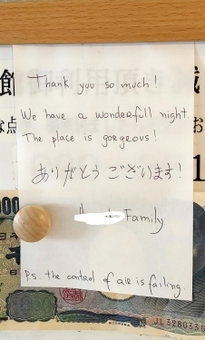 Thank you so much!
We have a wonderfull night.
The place is gorgeous!
ありがとうございます!
Family
P.S. the control of air is failing.
館
1
000